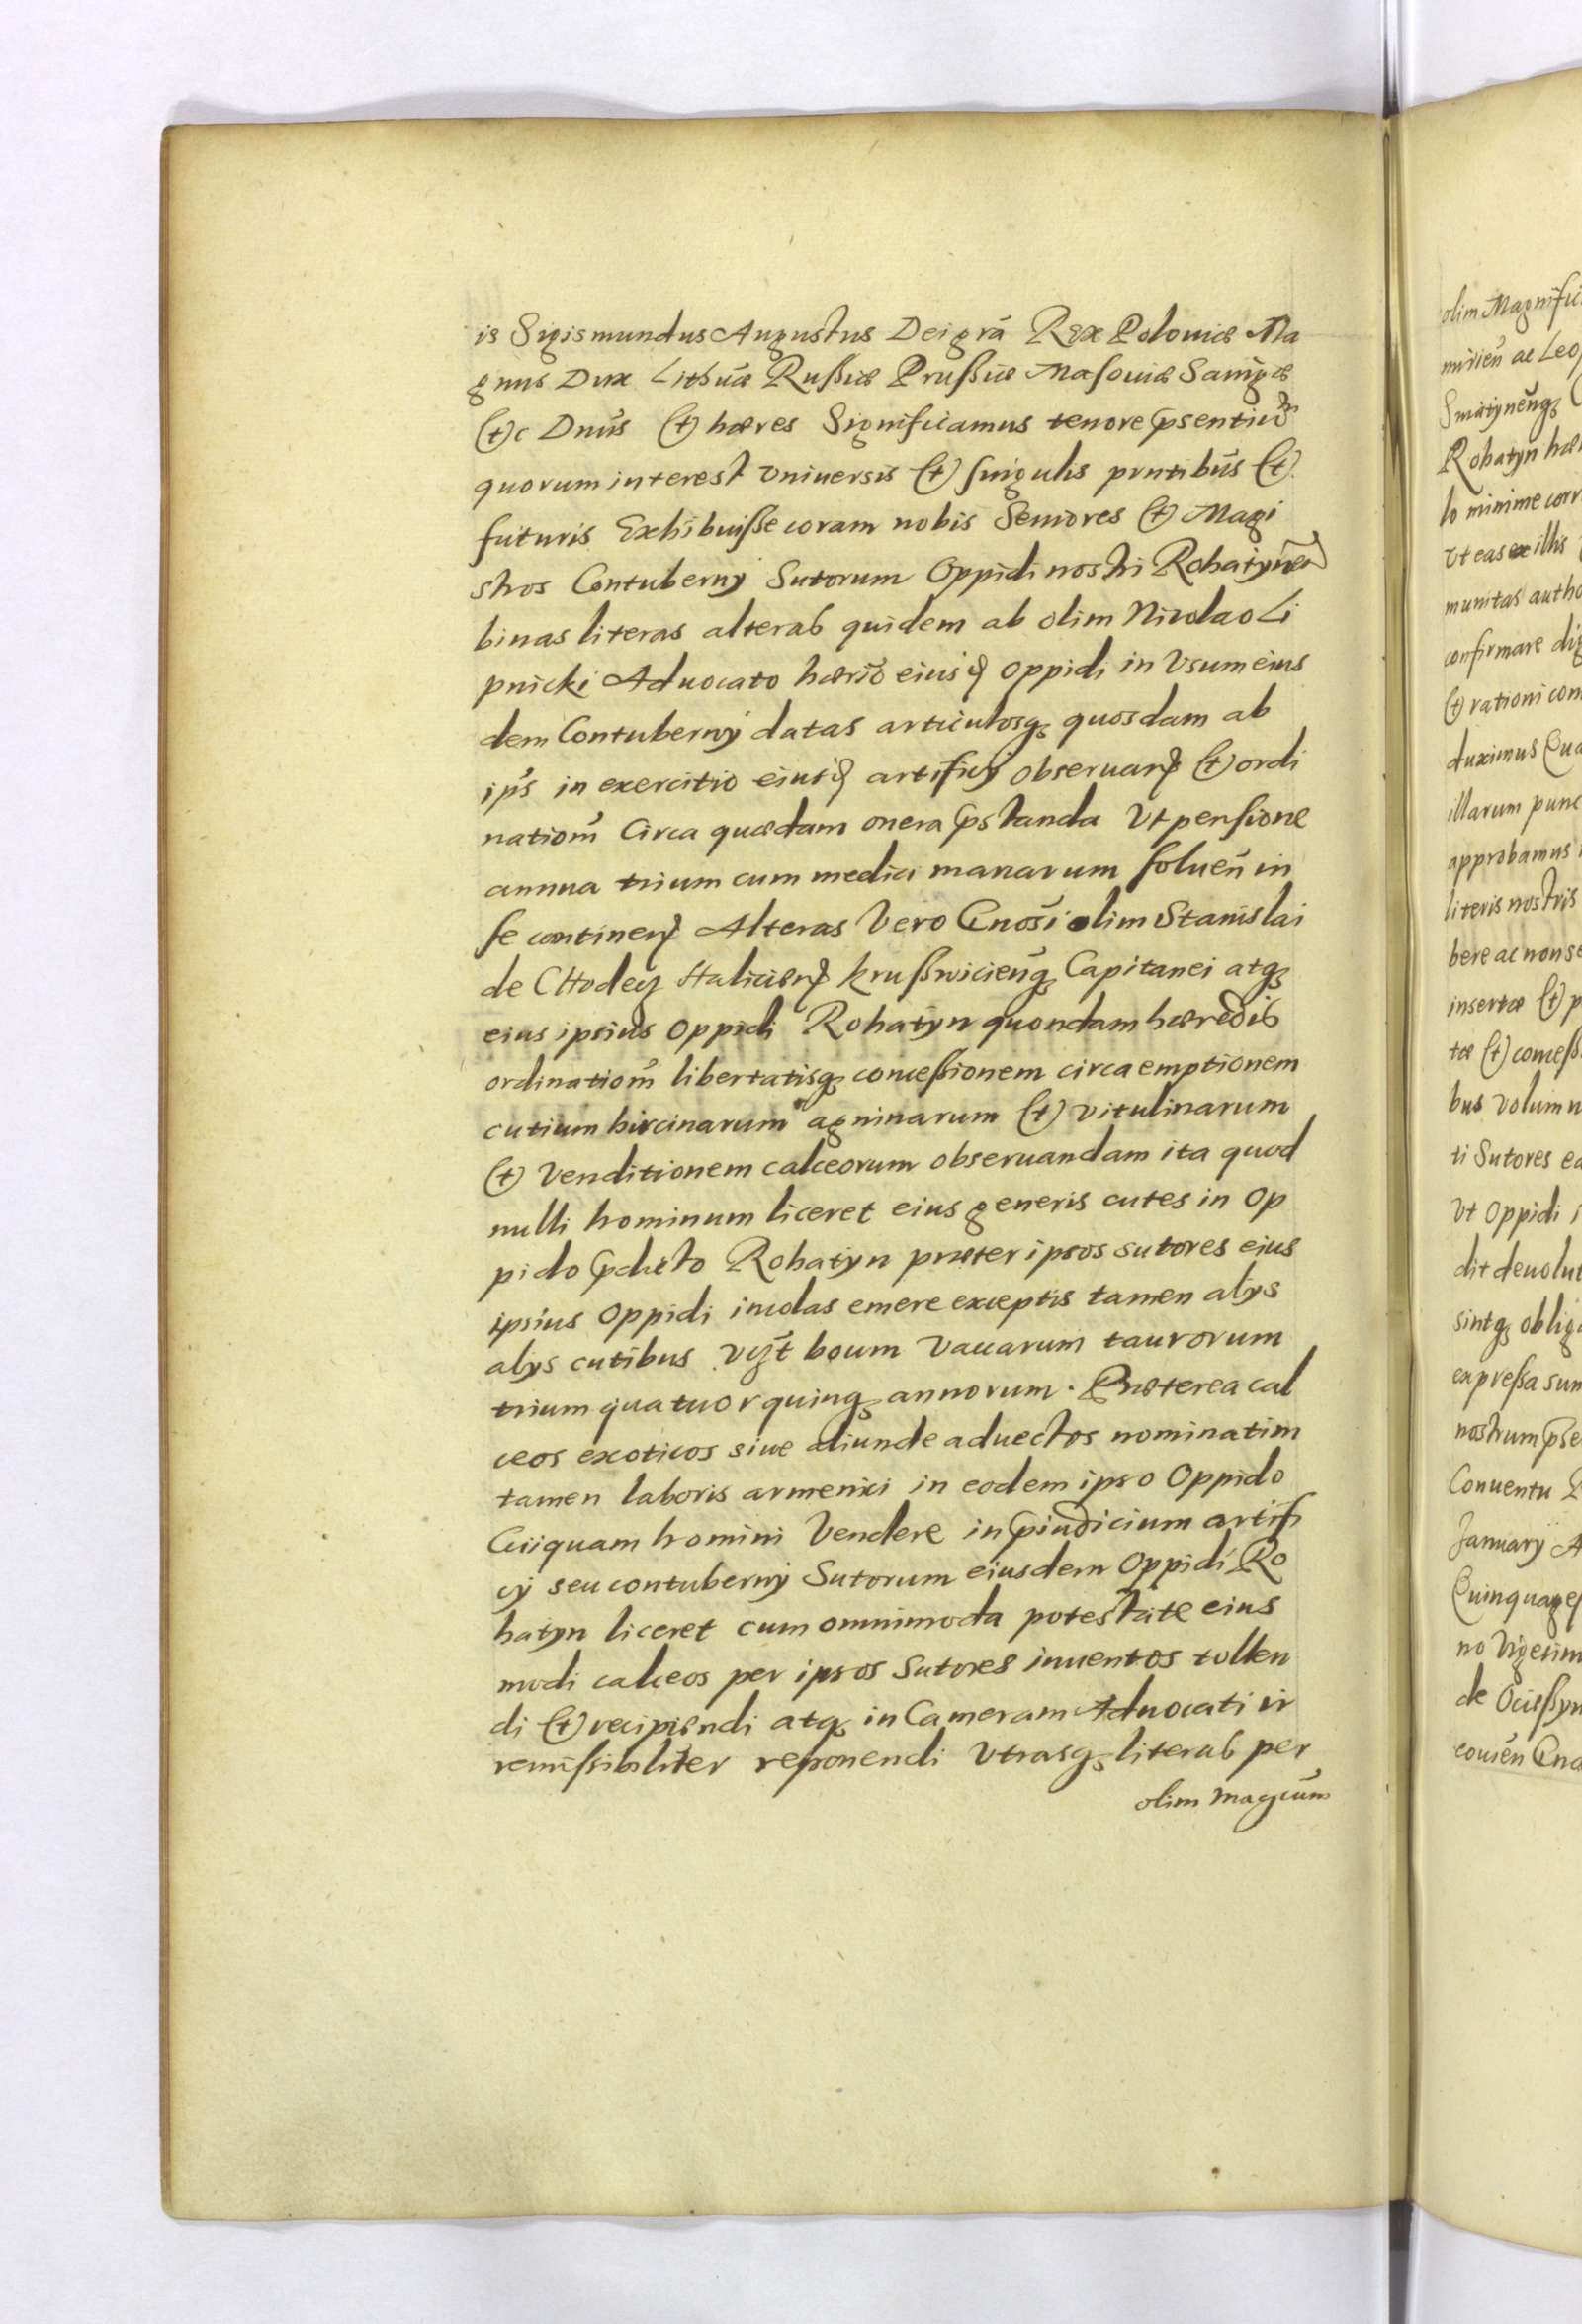 is Sigismundus Augustus Dei grã Rex Poloniæ Ma
gnus Dux Lithũæ Rußiæ Prußiæ Masouiæ Samigæ
(et)c Dnũs (et) hæres Significamus tenore p̃sentiũ
quorum interest vniuersis (et) singulis pnntibũs (et)
futuris Exhibuiße coram nobis Seniores (et) Magi
stros Contuberny Sutorum Oppidi nostri Rohatyneñ
binas literas alteras quidem ab olim Nicolao Li
pnicki Aduocato hærio eiusd oppidi in vsum eius
dem Contuberny datas articulosq quosdam ab
ip̃s in exercitio eiusd artificy obseruand (et) ordi
nationm̃ Circa quædam onera p̃standa vt pensione
annua trium cum media marcarum solueñ in
se continen Alteras vero Gnosĩ olim Stanislai
de CHodecz Halicien krußwicieñq Capitanei atq
eius ipsius oppidi Rohatyn quondam hæredis
ordinatiom̃ libertatisq conceßionem circa emptionem
cutium hircinarum agninarum (et) vitulinarum
(et) venditionem calceorum obseruandam ita quod
nulli hominum liceret eius generis cutes in op
pido p̃dicto Rohatyn præter ipsos sutores eius
ipsius Oppidi incolas emere exceptis tamen alys
alys cutibus vcz̃t boum vaccarum taurorum
trium quatuor quinq annorum. Præterea cal
ceos exoticos siue aliunde aduectos nominatim
tamen laboris armenici in eodem ipso Oppido
Cuiquam homini vendere in p̃iudicium artifi
cy seu contuberny Sutorum eiusdem Oppidi Ro
hatyn liceret cum omnimoda potestate eius
modi calceos per ipsos Sutores inuentos tollen
di (et) recipiendi atq in Cameram Aduocati ir
remißibiliter reponendi vtrasq literas per
olim magcum̃
olim Magnifi
miricñ ac Leo
Sniatyneñq
Rohatyn hæ
lo minime corr
vt eas ex illis
munitas autho
confirmare dig
(et) rationi con
duximus Qua
illarum punc
approbamus
literis nostris
bere ac non se
insertæ (et) p
tæ (et) conceß
bus volumu
ti Sutores ea
vt Oppidi i
dit deuolut
sintq obliga
expreßa sun
nostrum p̃se
Conuentu P
January A
Quinquages
no vigesim
de Ocießyn
couieñ Gno